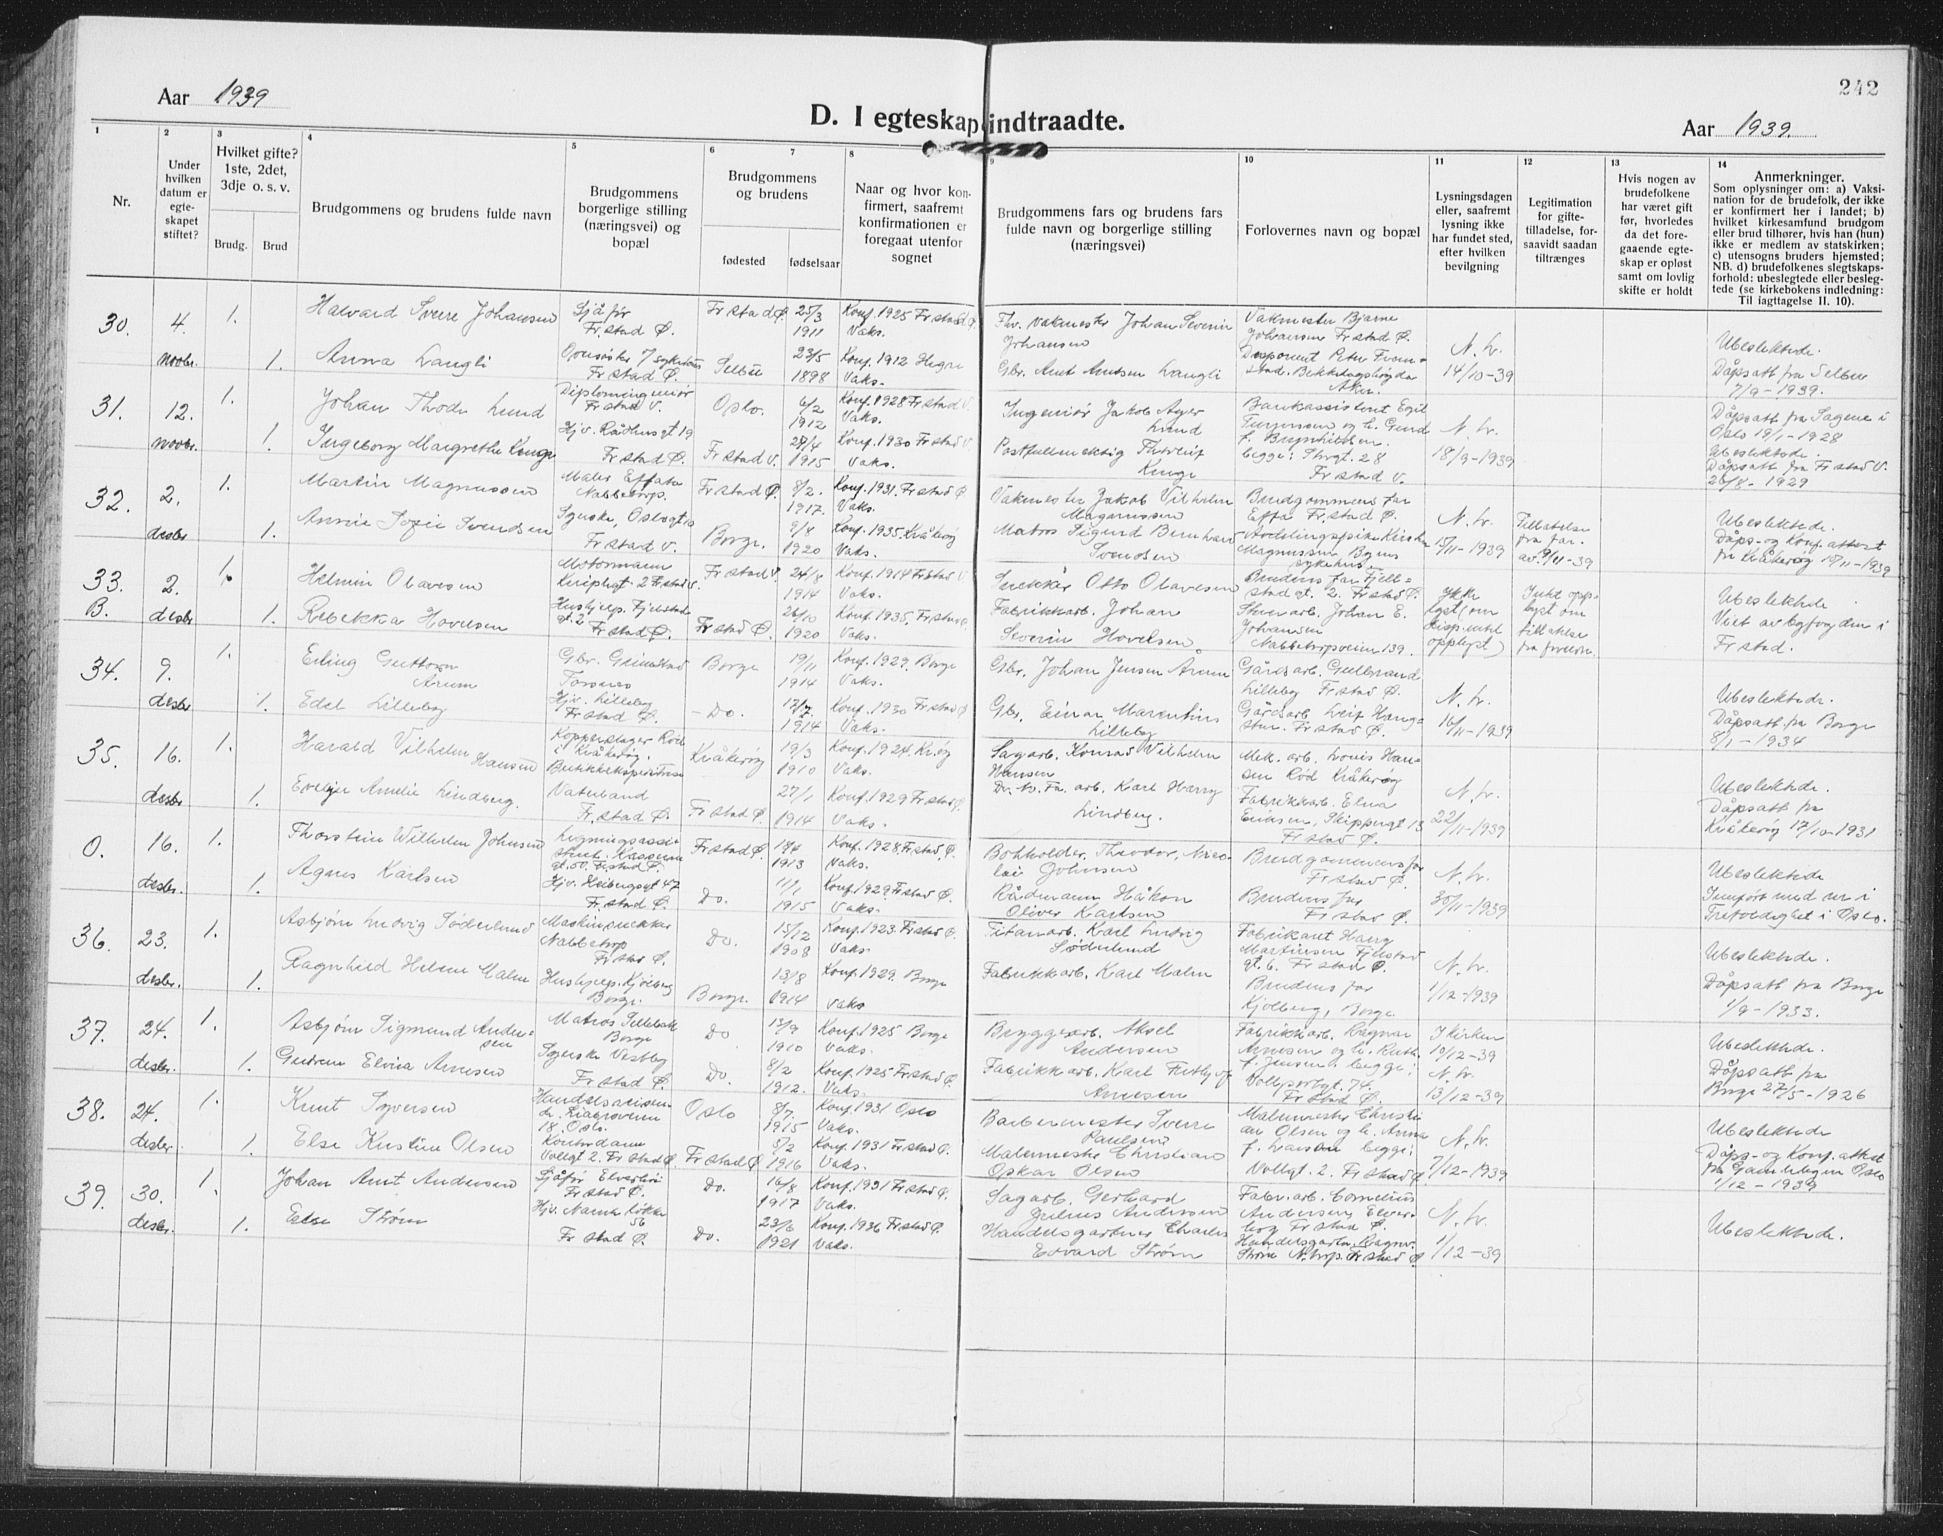 242
Aar 1939
D. I egteskap indtraadte.
Aar 1939.
1
Nr.
2
Under hvilken datum er egte-skapet stiftet?
3
Hvilket gifte? 1ste, 2det, 3dje o. s. v.
Brudg.
Brud
4
Brudgommens og brudens fulde navn
5
Brudgommens borgerlige stilling (næringsvei) og bopæl
6
7
Brudgommens og brudens
fødested
fødselsaar
8
Naar og hvor kon-firmert, saafremt konfirmationen er foregaat utenfor sognet
9
Brudgommens fars og brudens fars fulde navn og borgerlige stilling (næringsvei)
10
Forlovernes navn og bopæl
11
Lysningsdagen eller, saafremt lysning ikke har fundet sted, efter hvilken bevilgning
12
Legitimation for gifte-tilladelse, for-saavidt saadan tiltrænges
13
Hvis nogen av brudefolkene har været gift før, hvorledes da det fore-gaaende egte-skap er opløst samt om lovlig skifte er holdt
14
Anmerkninger.
Som oplysninger om: a) Vaksi-nation for de brudefolk, der ikke er konfirmert her i landet; b) hvilket kirkesamfund brudgom eller brud tilhører, hvis han (hun) ikke er medlem av statskirken; c) utensogns bruders hjemsted; NB. d) brudefolkenes slegtskaps-forhold: ubeslegtede eller besleg-tede (se kirkebokens indledning: Til iagttagelse II. 10).
30. 4. 1. Halvard Sverre Johansen Sjåfør Fr.stad Ø. Fr.stad Ø. 25/3 1911 Konf. 1925 Fr.stad Ø. Vaks. Fhv. vakmester Johan Severin Johansen Vakmester Bjarne Johansen Fr.stad Ø.
novbr. 1. Anna Langli Fr.stad Ø. Selbu 23/5 1898 Konf. 1912 Hegra Vaks. Gbr. Arnt Arntsen Langli Disponent Peter From-stad. Bekkelagshøgda Aker. N. kr. 14/10-39 Ubeslektede. Dåpsatt fra Selbu 7/9-1939.
31. 12. 1. Johan Thode Lund Diplomingeniør Fr.stad V. Oslo. 6/2 1912 Konf. 1928 Fr.stad V. Vaks. Ingeniør Jakob Ager Lund Bankassistent Egil
novbr. 1. Ingeborg Margrethe Kunge Hjv. Rådhusgt 19 Fr.stad Ø. Fr.stad V. 1915 Konf. 1930 Fr.stad V Vaks. Postfullmektig begge: Storgt. 28 Fr.stad V. 18/9-1939 Dåpsatt fra Sagene i Oslo 19/1-1928 Ubeslektede. Dåpsatt fra Fr.stad V. 26/8-1929
32. 2. 1. Martin Magnussen Maler Nabbetorp. Fr.stad Ø. 8/2. 1917. Konf. 1931 Fr.stad Ø Vaks. Vakmester Jakob Vilhelm Magnussen Brudgommens far Fr.stad Ø.
desbr. 1. Annie Sofie Svendsen Syerske, Oslogt Fr.stad V. Borge. 9/4 1920 Konf. 1935 Kråkerøy Vaks. Matros Sigurd Bernhard Svendsen Magnussen Byens sykehus. 15/11-1939 Tillatelse fra far. av 9/11-39 Ubeslektede. Dåps- og konf. attest fra Kråkerøy 10/11-1939
33. B. 2. 1. Helmin Olavesen Motormann Fr.stad V. 24/8 1914 Konf. 1914 Fr.stad V Vaks. Snekker Otto Olavesen Brudens far Fjell-stad gt. 2. Fr.stad Ø.
desbr 1. Rebekka Hovelsen Hushjelp. Fjellstad gt. 2 Fr.stad Ø. Fr.stad Ø. 26/10 1920 Konf. 1935. Fr.stad Ø. Vaks. Fabrikkarb. Johan Severin Hovelsen. Skoarb. Johan E. Johansen Nabbetorpveien 139. Ikke lyst (om disp. intet opplyst) Intet opp-lyst om tillatelse fra foreldre. Ubeslektede. Viet av byfogden i Fr.stad.
34. 9. 1. Erling Guttorm Arum Gbr. Grimstad Torsnes Borge 19/11 1914 Konf. 1929. Borge Vaks. Gbr. Johan Jensen Arum Gårdsarb. Gulbrand Lilleby Fr.stad Ø.
desbr 1. Edel Lilleby Hjv. Lilleby Fr.stad Ø. - Do. 17/7 1914 Konf. 1930 Fr.stad Ø Vaks. Gbr. Einar Marentius Lilleby Gårdsarb. Leif Haug-stun. Fr.stad Ø. N. kr. 16/11-1939 Ubeslektede. Dåpsatt. fra Borge 8/1-1934
35. 16. 1. Harald Vilhelm Hansen Kopperslager Rød i Kråkerøy. Kråkerøy 19/3 1910 Konf. 1924. Kråkerøy Vaks. Sagarb. Konrad Vilhelm Hansen Mek. arb. Louis Han-sen Rød Kråkerøy
desbr 1. Evelyn Amelie Lindberg. Butikkekspeditrise Vaterland Fr.stad Ø. Fr.stad Ø. 27/1 1914 Konf. 1929 Fr.stad Ø. Vaks. Karl Harry Lindberg. Fabrikkarb. Elna Eriksen, Skippergt 13 Fr.stad Ø. N. kr. 22/11-1939 Ubeslektede. Dåpsatt fra Kråkerøy 17/10-1931
O. 16. 1. Thorstein Wilhelm Johnsen Fr.stad Ø. Fr.stad Ø. 1913 Konf. 1928. Fr.stad. Ø. Vaks. Bokholder. Theodor Nico-lai Johnsen Brudgommens far Fr.stad Ø.
desbr. 1. Agnes Karlsen Hjv. Heibergsgt 47 Fr.stad Ø. Do. 11/1 1915 Konf. 1929 Fr.stad Ø. Vaks. Rådmann Håkon Oliver Karlsen Brudens far Fr.stad Ø. N. kr. 30/11-1939 Ubeslektede Innført med nr i Trefoldighet i Oslo.
36. 23. 1. Asbjørn Ludvig Söderlund Maskinsnekker Nabbetorp Fr.stad Ø. Do. 15/12 1908 Konf. 1923 Fr.stad Ø. Vaks. Titanarb. Karl Ludvig Söderlund Fabrikant Harry Martinsen Fjellstad gt. 6. Fr.stad Ø.
desbr. 1. Ragnhild Helene Malm Hushjelp. Kjølberg Borge. Borge. 13/8 1914 Konf. 1929. Borge Vaks Fabrikkarb. Karl Malm Brudens far Kjølberg, Borge N. kr. 1/12-1939 Ubeslektede. Dåpsatt fra Borge 1/9-1933.
37. 24. 1. Asbjørn Sigmund Ander-sen Matros Sellebakk Borge Do 13/7 1910 Konf. 1925 Borge Vaks. Bryggearb. Aksel Andersen Fabrikkarb. Ragnar I kirken 10/12-39
desbr. 1. Gudrun Elvira Arnesen Syerske Vestby Fr.stad Ø. Do. 8/2 1912. Konf. 1925 Fr.stad Ø. Vaks. Fabrikkarb. Karl Arnesen Arnesen og h. Ruth f. Jensen. begge: Vollportgt. 74. Fr.stad Ø. N. kr. 13/12-39 Ubeslektede. Dåpsatt fra Borge 27/5-1926
38. 24. 1. Knut Syversen Handelsreisen-de. 18. Oslo. Oslo 8/7. 1915 Konf. 1931 Oslo Vaks. Barbermester Sverre Paulsen Malermester Christi-an Olsen og h. Anna
desbr. 1. Else Kristine Olsen Kontordame Vollgt 2. Fr.stad Ø. Fr.stad Ø 5/2 1916 Konf. 1931 Fr.stad Ø. Vaks. Malermester Christian Oskar Olsen f. Larsen begge: Vollgt. 2. Fr.stad Ø N. kr. 7/12-1939 Ubeslektede Dåps- og konf. attest fra Gamlebyen Oslo 1/12-1939
39. 30. 1. Johan Arnt Andersen Sjåfør Fr.stad Ø. Do. 16/8 1917 Konf. 1931 Fr.stad Ø. Vaks. Sagarb. Gerhard Julius Andersen Fabr. arb. Cornelius Andersen, Fr.stad Ø.
desbr. 1. Else Strøm Hjv. 56 Fr.stad Ø. Do. 23/6 1921 Konf. 1936 Fr.stad Ø. Vaks. Handelsgartner Charles Edvard Strøm Handelsgartn. Ragnv. Strøm N.torp. Fr.stad Ø N. kr. 1/12-39 Ubeslektede.